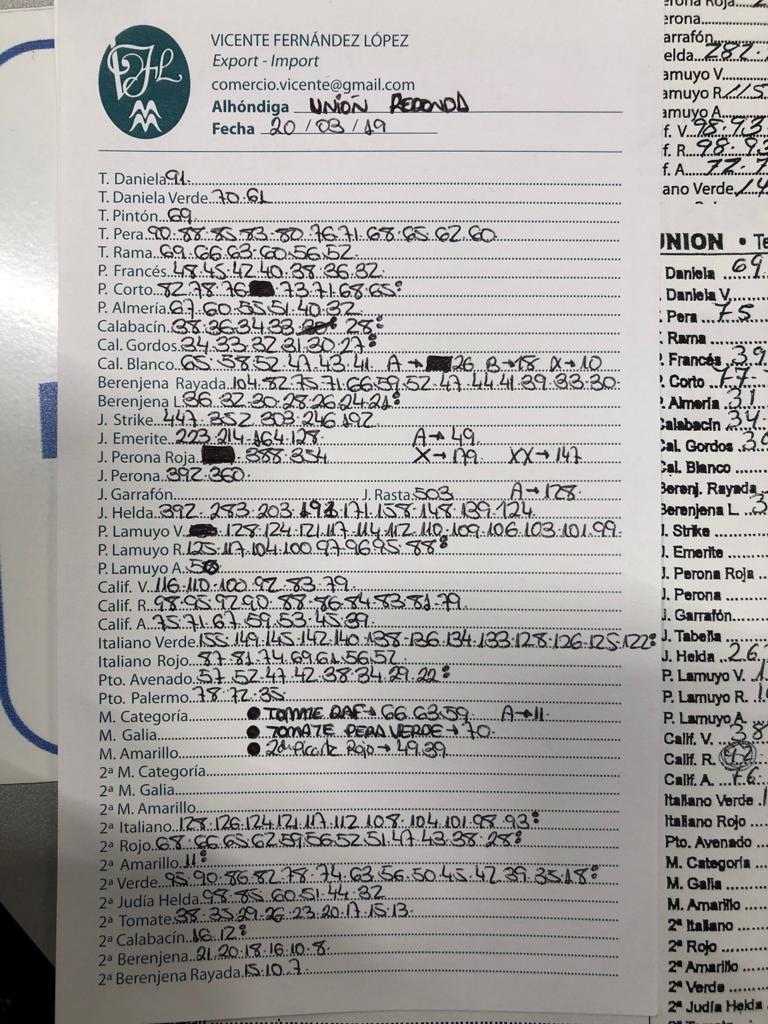 VICENTE FERNÁNDEZ LÓPEZ
Export - Import
comercio.vicente@gmail.com
Alhóndiga UNIÓN REDONDA
Fecha 20/03/19
T. Daniela 91.
T. Daniela Verde 70.61
T. Pintón 69.
T. Pera 90.88.85.83.80.76.71.68.65.62.60
T. Rama 69.66.63.60.56.52.
P. Francés 48.45.42.40.38.36.32.
P. Corto 82.78.76 73.71.68.65:
P. Almería 67.60.55.51.40.32.
Calabacín 38.36.34.33. 28:
Cal. Gordos 34.33.32.31.30.27:
Cal. Blanco 65.58.52.47.43.41. A→ 26 B→18 X→10
Berenjena Rayada 104.82.75.71.66.59.52.47.44.41.39.33.30
Berenjena L 36.32.30.28.26.24.21:
J. Strike 447.352.303.246.192
J. Emerite 223.214.164.128. A→49.
J. Perona Roja 388.354 X→179. XX→147
J. Perona 392.360.
J. Garrafón J. Rasta 503 A→128.
J. Helda 392.283.203.192.171.158.148.139.124
P. Lamuyo V. 128.124.121.117.114.112.110.109.106.103.101.99.
P. Lamuyo R. 125.117.104.100.97.96.95.88:
P. Lamuyo A.
Calif. V. 116.110.100.92.83.79.
Calif. R. 98.95.92.90.88.86.84.83.81.79
Calif. A. 75.71.67.59.53.45.39
Italiano Verde 155.149.145.142.140.138.136.134.133.128.126.125.122:
Italiano Rojo 87.81.74.69.61.56.52
Pto. Avenado 57.52.47.42.38.34.29.22:
Pto. Palermo 78.72.35
M. Categoría ● TOMATE RAF→66.63.59 A→11.
M. Galia ● TOMATE PERA VERDE→70.
M. Amarillo ● 2ª Picante Rojo→49.39
2ª M. Categoría
2ª M. Galia
2ª M. Amarillo
2ª Italiano 128.126.124.121.117.112.108.104.101.98.93:
2ª Rojo 68.66.65.62.59.56.52.51.47.43.38.28:
2ª Amarillo 11:
2ª Verde 95.90.86.82.78.74.63.56.50.45.42.39.35.18:
2ª Judía Helda 98.85.60.51.44.32
2ª Tomate 38.35.29.26.23.20.17.15.13.
2ª Calabacín 16.12:
2ª Berenjena 21.20.18.16.10.8.
2ª Berenjena Rayada 15.10.7.
erona
arrafón
elda 282.
amuyo V.
amuyo R. 115
amuyo A.
f. V. 98.93
f. R. 98.93
f. A. 72.7
ano Verde
UNION • Te
Daniela 69
Daniela V.
Pera 75
Rama
Francés 39
P. Corto 77
P. Almería 31
Calabacín 34
Cal. Gordos
Cal. Blanco
Berenj. Rayada
Berenjena L.
J. Strike
J. Emerite
J. Perona Roja
J. Perona
J. Garrafón
J. Tabella
J. Helda 26
P. Lamuyo V.
P. Lamuyo R.
P. Lamuyo A.
Calif. V. 38
Calif. R.
Calif. A. 76
Italiano Verde
Italiano Rojo
Pto. Avenado
M. Categoría
M. Galia
M. Amarillo
2ª Italiano
2ª Rojo
2ª Amarillo
2ª Verde
2ª Judía Helda